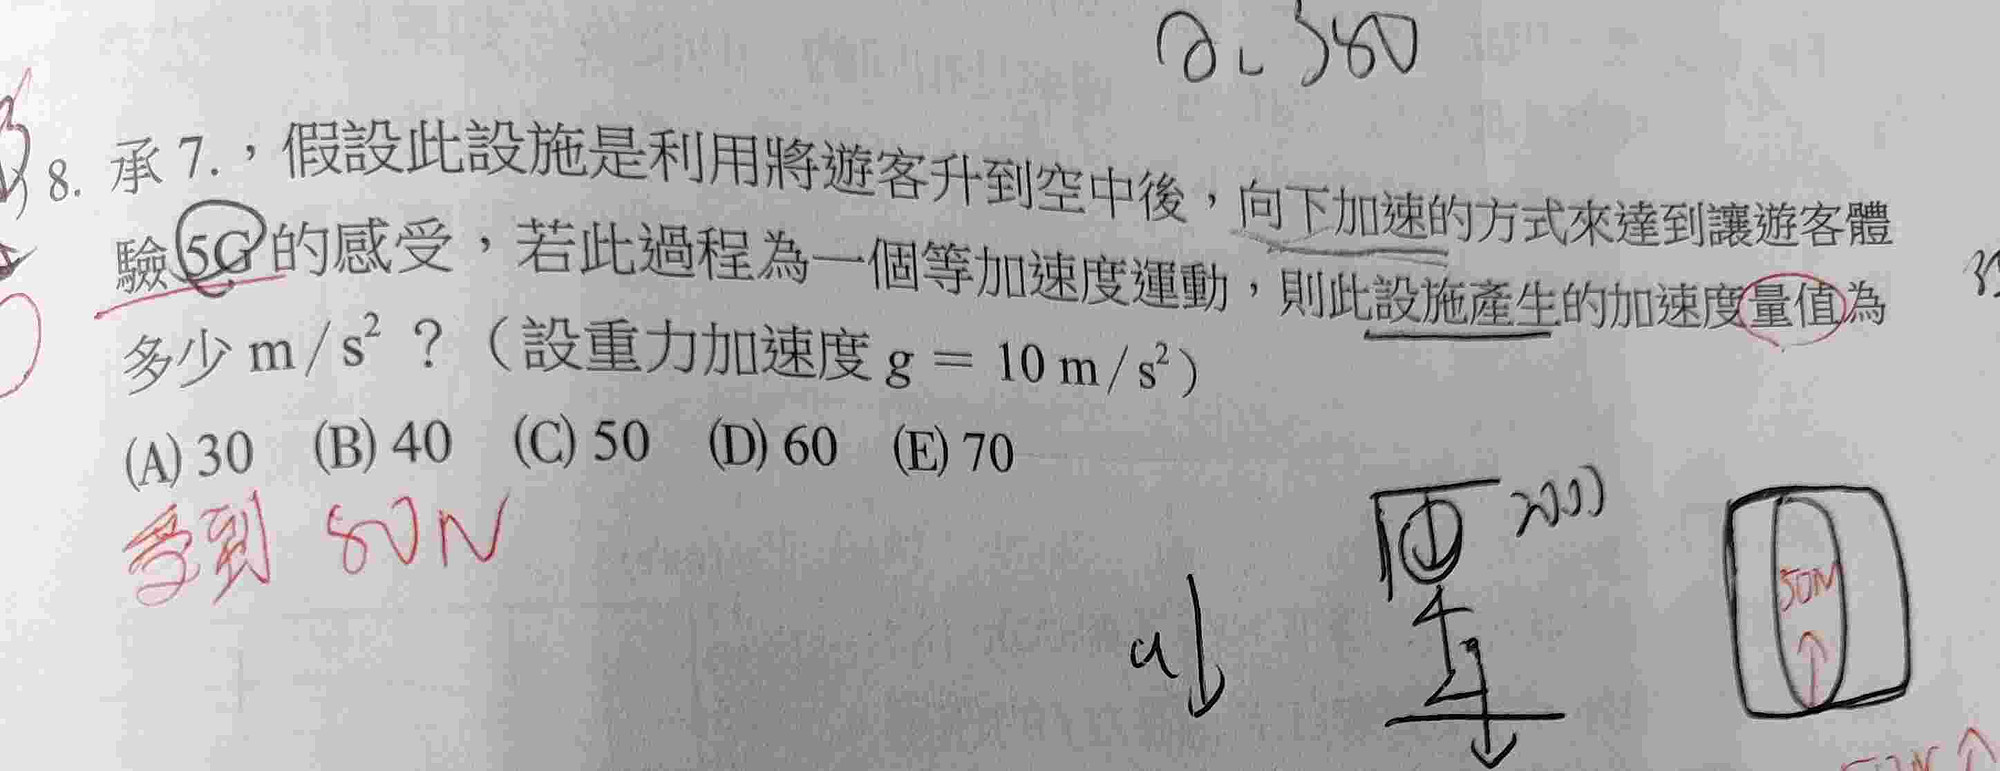 380
8. 承 7.，假設此設施是利用將遊客升到空中後，向下加速的方式來達到讓遊客體
驗 5G 的感受，若此過程為一個等加速度運動，則此設施產生的加速度量值為
多少 m/s² ？（設重力加速度 g = 10 m/s²）
(A) 30 (B) 40 (C) 50 (D) 60 (E) 70
受到 80N
a
50N